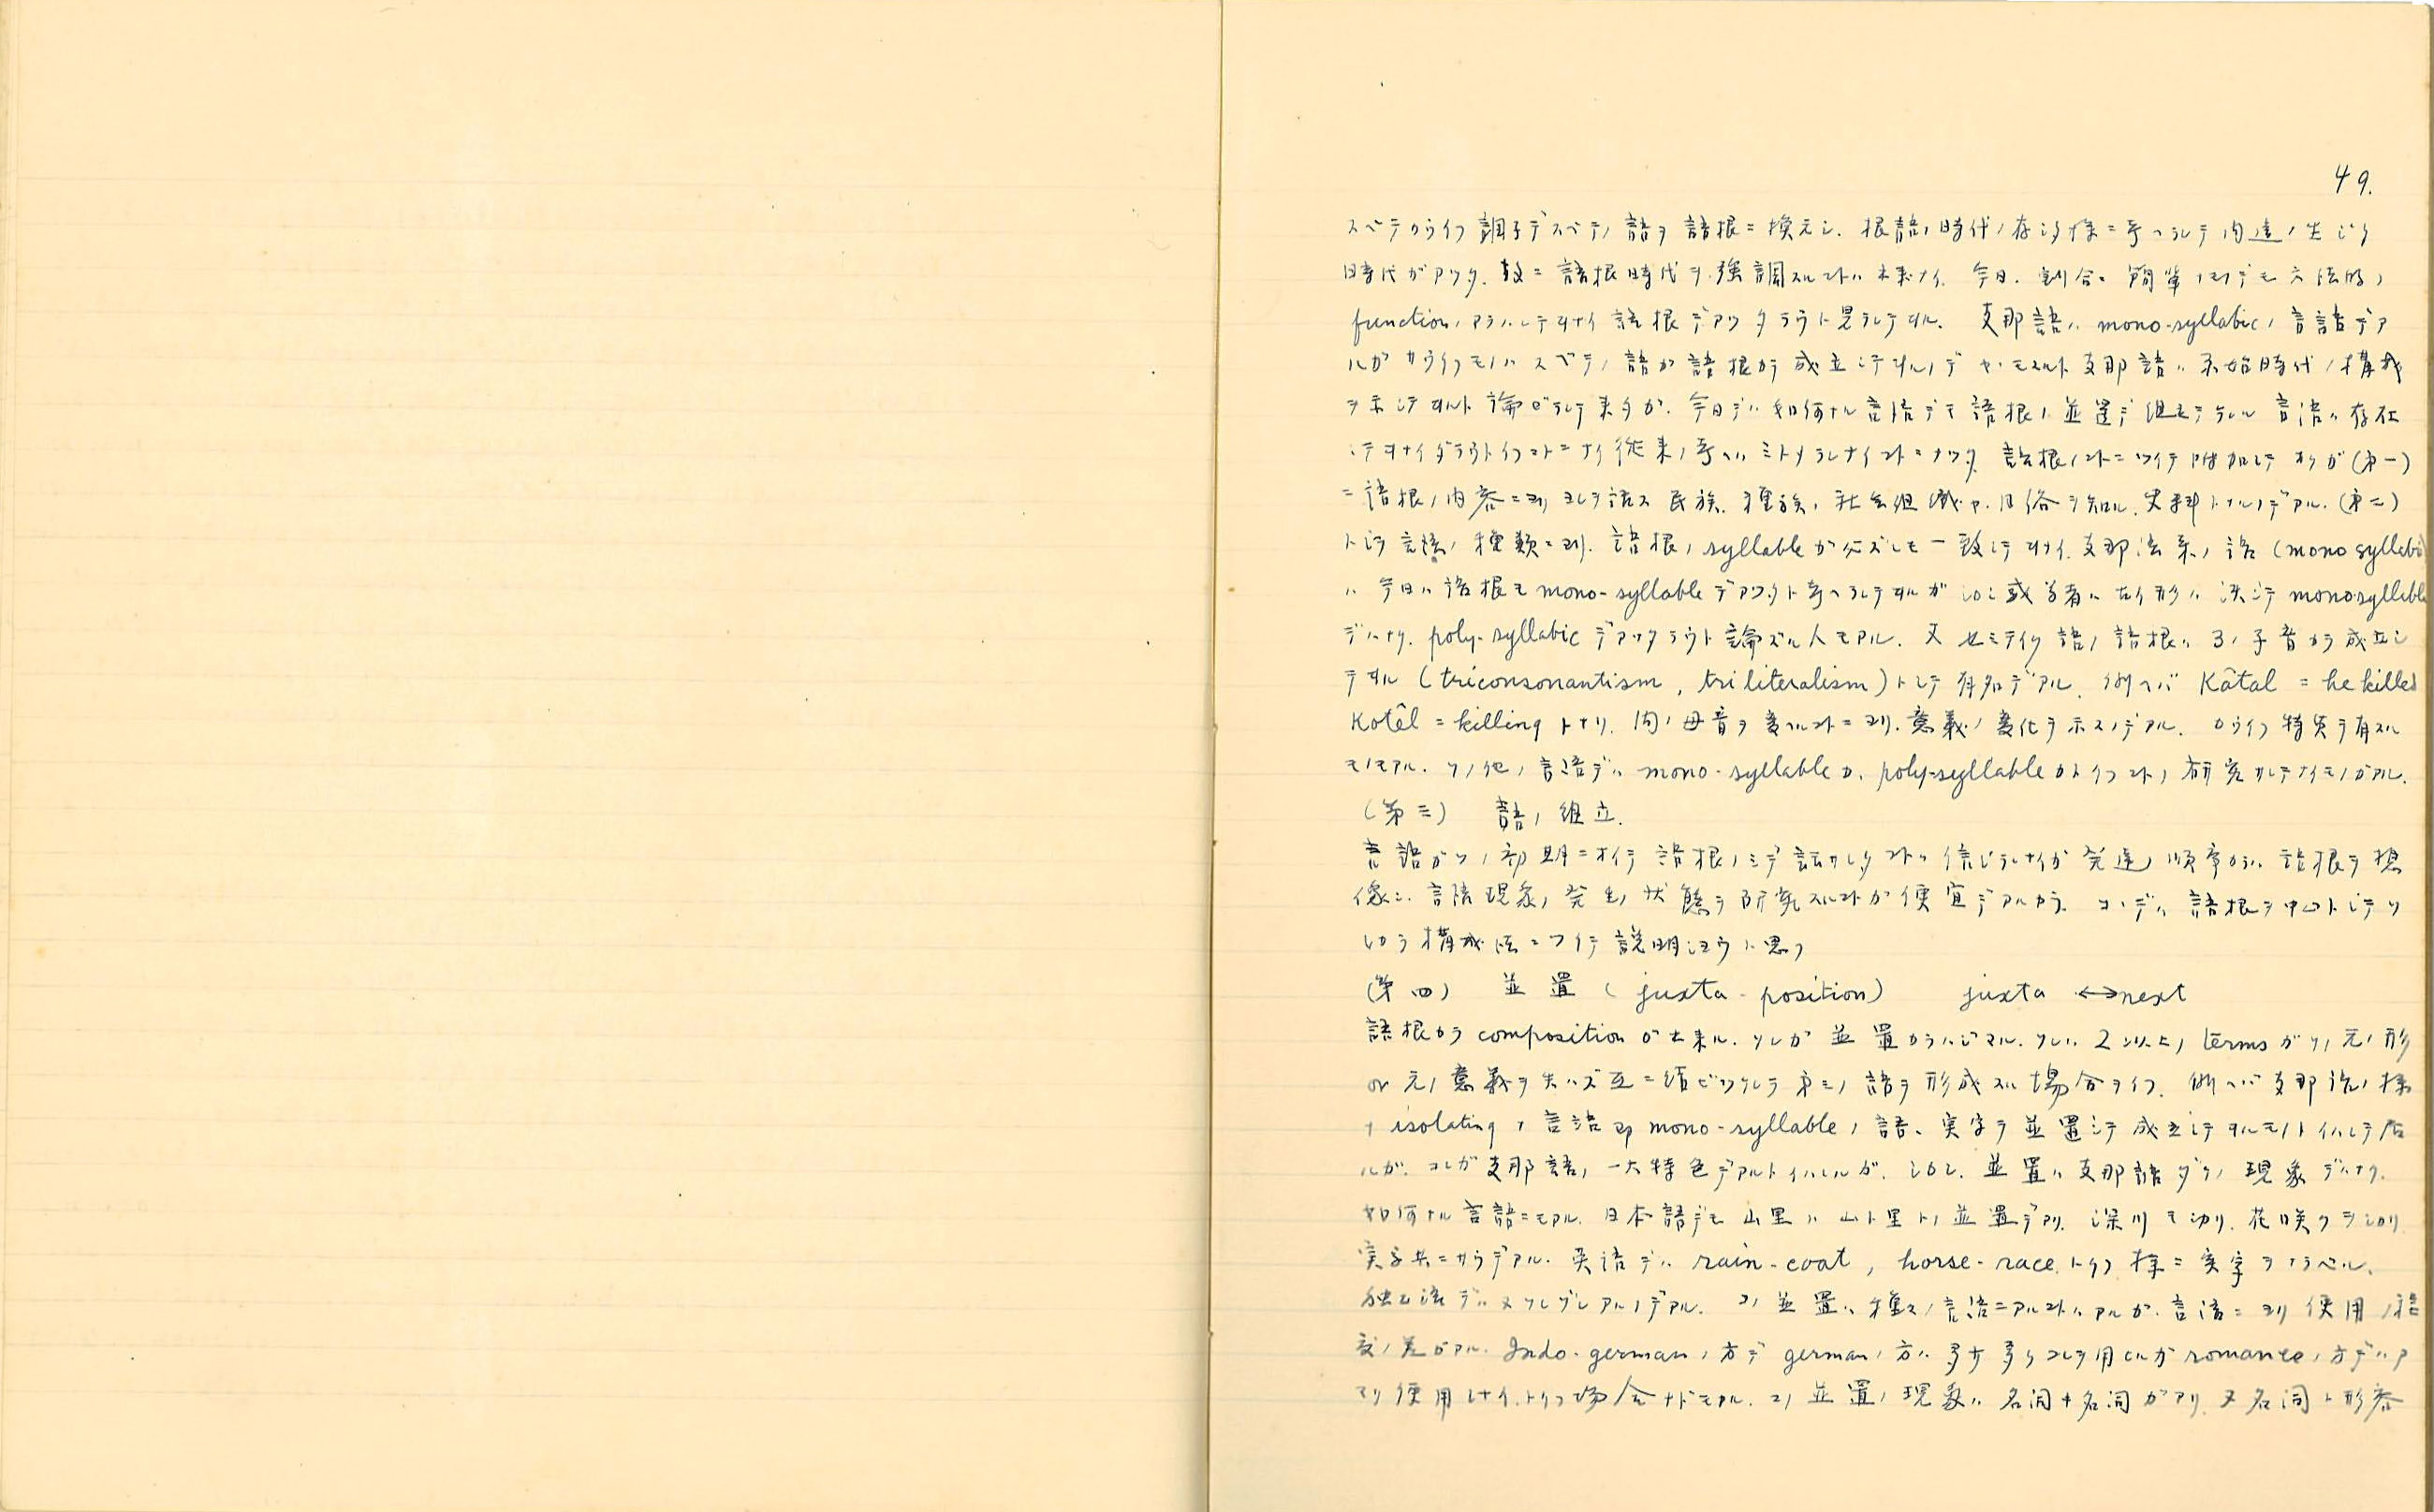 49.
スベテカウイフ調子デスベテノ語ヲ語根ニ換元シ. 根語ノ時代ノ存シタ様ニ考ヘラレテ
時代ガアツタ. 故ニ語根時代ヲ強調スルコトハ出来ナイ. 今日. 割合ニ簡単ノモノデモ文法的ノ
functionノアラハレテヰナイ語根デアツタラウト見ラレテヰル. 支那語ハ mono-syllabicノ言語デア
ルガカウイフモノハスベテノ語ガ語根カラ成立シテヰルノデ 支那語ハ原始時代ノ構成
ヲ示シテヰルト論ゼラレテ来タガ. 今日デハ如何ナル言語デモ語根ノ並置デ組立テラレル言語ハ存在
シテヰナイダラウトイフコトニナイ従来ノ考ヘハミトメラレナイコトニナツタ. 語根ノコトニツイテ附加シテオクガ(第一)
ニ語根ノ内容ニヨリコレヲ話ス民族. 種族. 社会組織ヤ. 風俗ヲ知ル. 史料トナルノデアル. (第二)
トシテ言語ノ種類ニヨリ. 語根ノ syllable ガ必ズシモ一致シテヰナイ. 支那語系ノ語 (mono syllabic)
ハ今日ハ語根モ mono-syllable デアツタト考ヘラレテヰルガシカシ或学者ハ古イ形ハ決シテ monosyllable
デハナク. poly-syllabic デアツタラウト論ズル人モアル. 又セミテイク語ノ語根ハ3ノ子音カラ成立シ
テヰル (triconsonantism, triliteralism) トシテ有名デアル. 例ヘバ Kâtal = he killed
Kotêl = killing トナリ. 内ノ母音ヲ変ヘルコトニヨリ. 意義ノ変化ヲ示スノデアル. カウイフ特質ヲ有スル
モノモアル. ソノ他ノ言語デハ mono-syllable カ. poly-syllable カトイフコトノ研究サレテナイモノガアル.
(第三) 語ノ組立.
言語ガソノ初期ニオイテ語根ノミデ話サレタコトハ信ジラレナイガ発達ノ順序カラハ語根ヲ想
像シ. 言語現象ノ発生ノ状態ヲ研究スルコトガ便宜デアルカラ. コヽデハ語根ヲ中心トシテソ
レカラ構成法ニツイテ説明シヨウト思フ
(第四) 並置 (juxta-position) juxta ↔ next
語根カラ composition ガ出来ル. ソレガ並置カラハジマル. ソレハ2ツ以上ノ terms ガソノ元ノ形
or 元ノ意義ヲ失ハズ互ニ結ビツケレテ第三ノ語ヲ形成スル場合ヲイフ. 例ヘバ支那語ノ様
ナ isolating ノ言語ハ mono-syllableノ語、実字ヲ並置シテ成立シテヰルモノトイハレテ居
ルガ. コレガ支那語ノ一大特色デアルトイハレルガ. シカシ. 並置ハ支那語ダケノ現象デハナク.
如何ナル言語ニモアル. 日本語デモ山里ハ山ト里トノ並置デアリ. 深川モ然リ. 花咲クヲ然リ.
実字共ニサウデアル. 英語デハ rain-coat, horse-race トイフ様ニ実字ヲナラベル.
独乙語デハ又ソレゾレアルノデアル. コノ並置ハ種々ノ言語ニアルコトハアルガ. 言語ニヨリ使用ノ程
度ノ差ガアル. Indo-germanノ方デ germanノ方ハ多ク コレヲ用ヒルガ romanceノ方デハア
マリ使用シナイ. トイフ場合ナドモアル. コノ並置ノ現象ハ名詞+名詞ガアリ. 又名詞ト形容